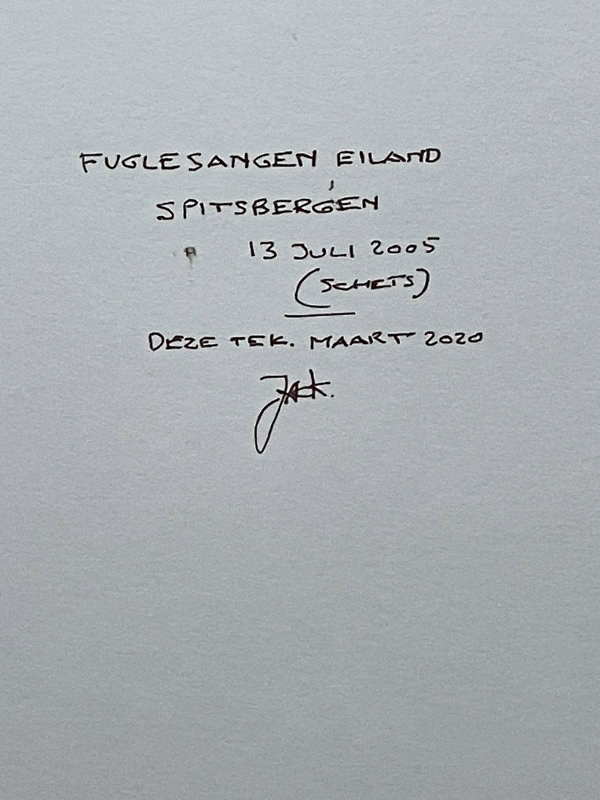 FUGLESANGEN EILAND
SPITSBERGEN
13 JULI 2005
(SCHETS)
DEZE TEK. MAART 2020
Jack.